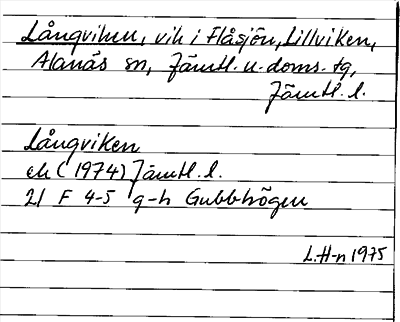 Långviken, vik i Flåsjön, Lillviken,
Alanäs sn, Jämtl. n. doms. tg,
Jämtl. l.
Långviken
ek (1974) Jämtl. l.
21 F 4-5 g-h Gubbhögen
L.H-n 1975